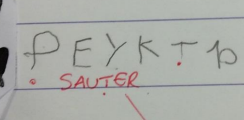 PEYKTP
SAUTER